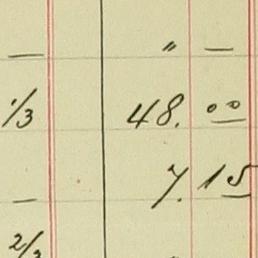 " —
1/3 48. 00
— 7. 15
2/3 "